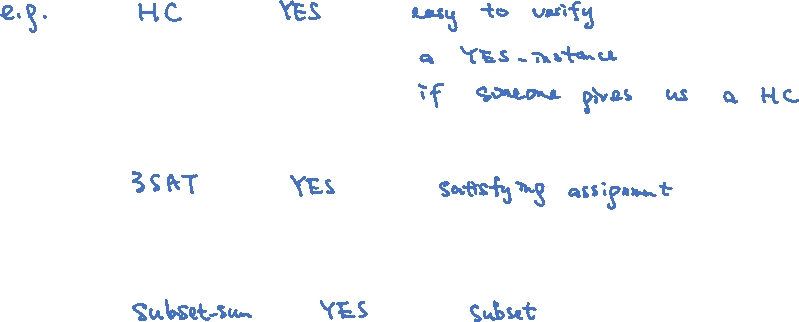 e.g. HC YES easy to verify
a YES-instance
if someone gives us a HC
3SAT YES satisfying assignment
Subset-sum YES subset